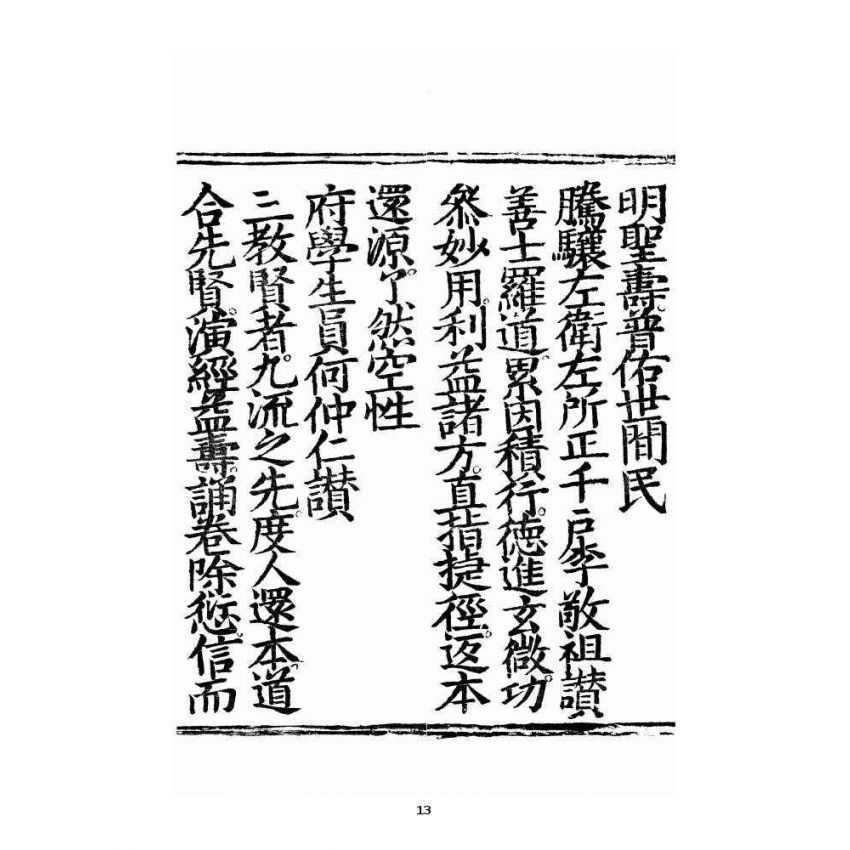 明聖壽。普佑世間民
騰驤左衛左所正千戶李敬祖讃
善士羅道。累因積行。德進玄微。功
叅妙用。利益諸方。直指捷徑。返本
還源。了然空性
府學生員何仲仁讃
三教賢者。九流之先。度人還本。道
合先賢。演經益壽。誦卷除愆。信而
13